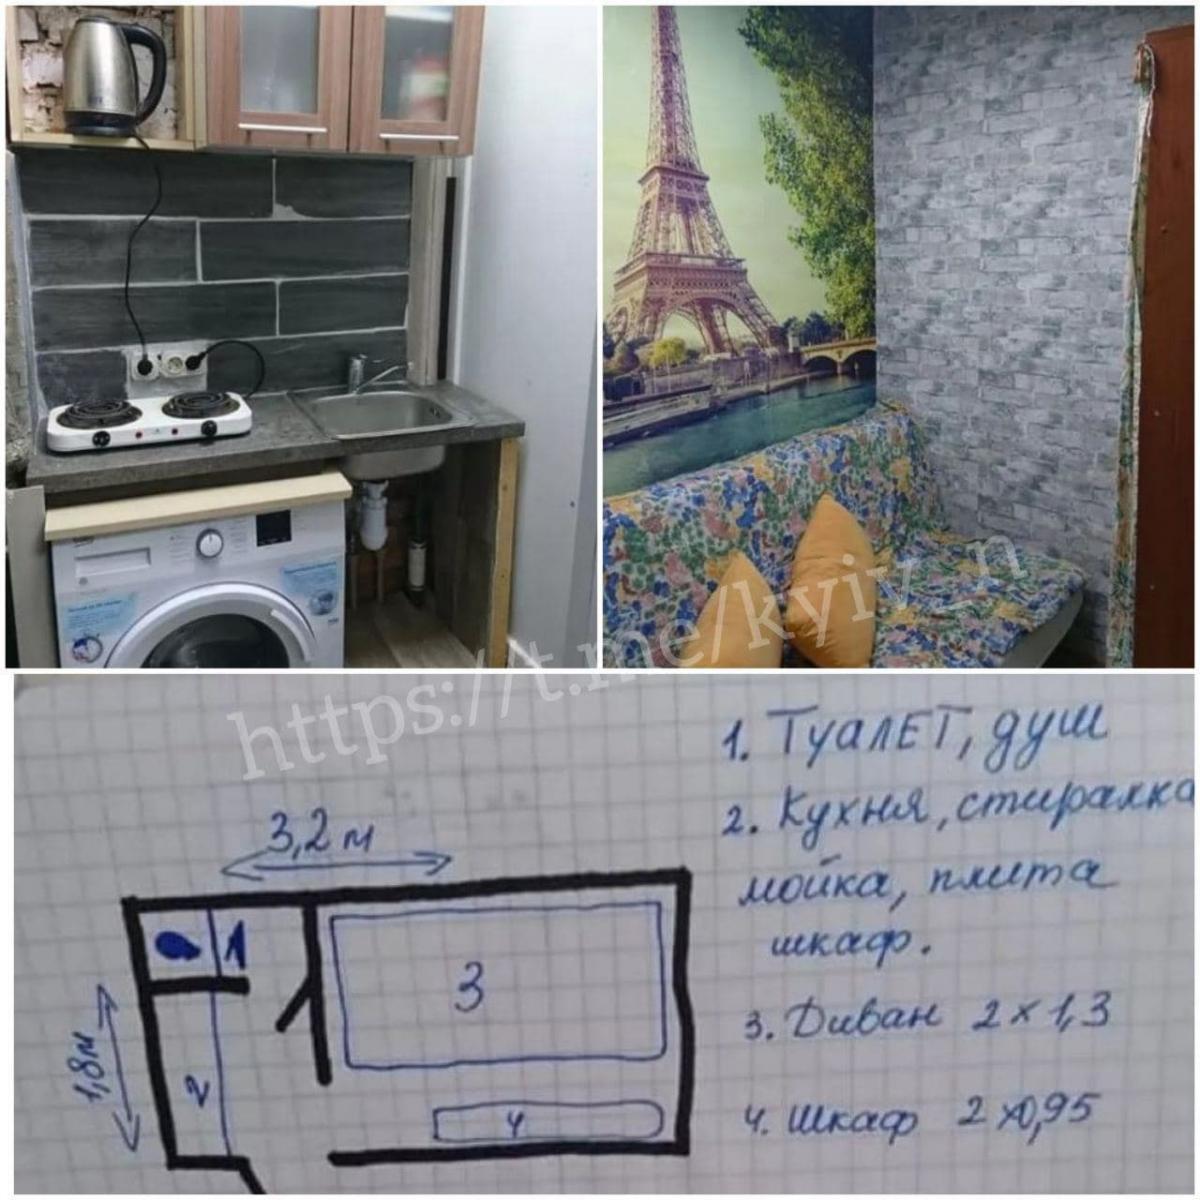 https://t.me/kyiv_n
3,2 м
1,8м
1
2
3
4
1. Туалет, душ
2. Кухня, стиралка
мойка, плита
шкаф.
3. Диван 2×1,3
4. Шкаф 2×0,95